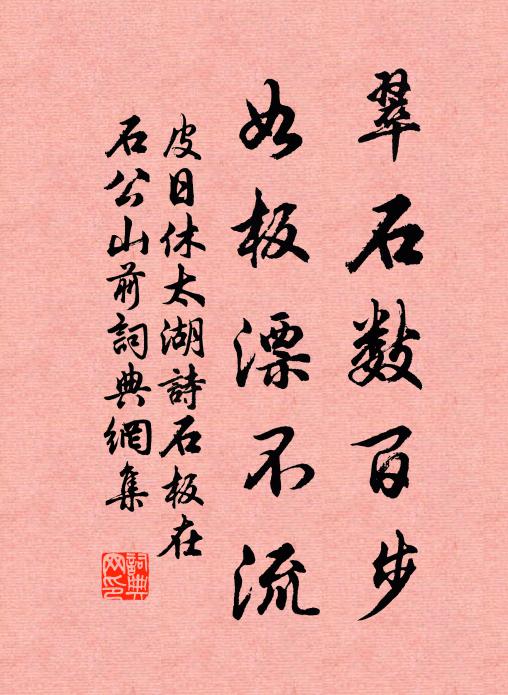 翠石数百步
如板漂不流
皮日休太湖詩石板在
石公山前詞典網集
詞典
网印